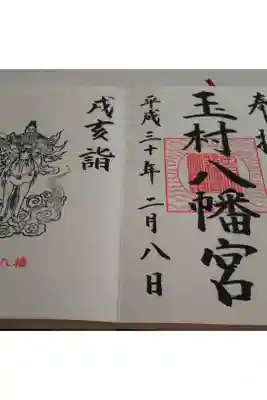 奉拝
玉村八幡宮
平成三十年二月八日
戌亥詣
八幡